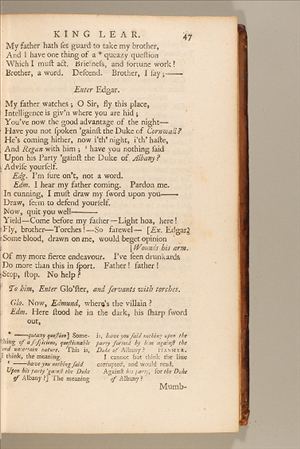 KING LEAR. 47
My father hath ſet guard to take my brother,
And I have one thing of a * queazy queſtion
Which I muſt act. Briefneſs, and fortune work!
Brother, a word. Deſcend. Brother, I ſay;——
Enter Edgar.
My father watches; O Sir, fly this place,
Intelligence is giv'n where you are hid;
You've now the good advantage of the night—
Have you not ſpoken 'gainſt the Duke of Cornwall?
He's coming hither, now i'th' night, i'th' haſte,
And Regan with him; ' have you nothing ſaid
Upon his Party 'gainſt the Duke of Albany?
Adviſe yourſelf.
Edg. I'm ſure on't, not a word.
Edm. I hear my father coming. Pardon me.
In cunning, I muſt draw my ſword upon you——
Draw, ſeem to defend yourſelf.
Now, quit you well———
Yield—Come before my father—Light hoa, here!
Fly, brother—Torches!—So farewel— [Ex. Edgar.
Some blood, drawn on me, would beget opinion
[Wounds his arm.
Of my more fierce endeavour. I've ſeen drunkards
Do more than this in ſport. Father! father!
Stop, ſtop. No help?
To him, Enter Glo'ſter, and ſervants with torches.
Glo. Now, Edmund, where's the villain?
Edm. Here ſtood he in the dark, his ſharp ſword
out,
* —queazy queſtion] Some-
thing of a ſuſpicious, queſtionable
and uncertain nature. This is,
I think, the meaning.
' —have you nothing ſaid
Upon his party 'gainſt the Duke
of Albany?] The meaning
is, have you ſaid nothing upon the
party formed by him againſt the
Duke of Albany? HANMER.
I cannot but think the line
corrupted, and would read,
Againſt his party, for the Duke
of Albany?
Mumb-